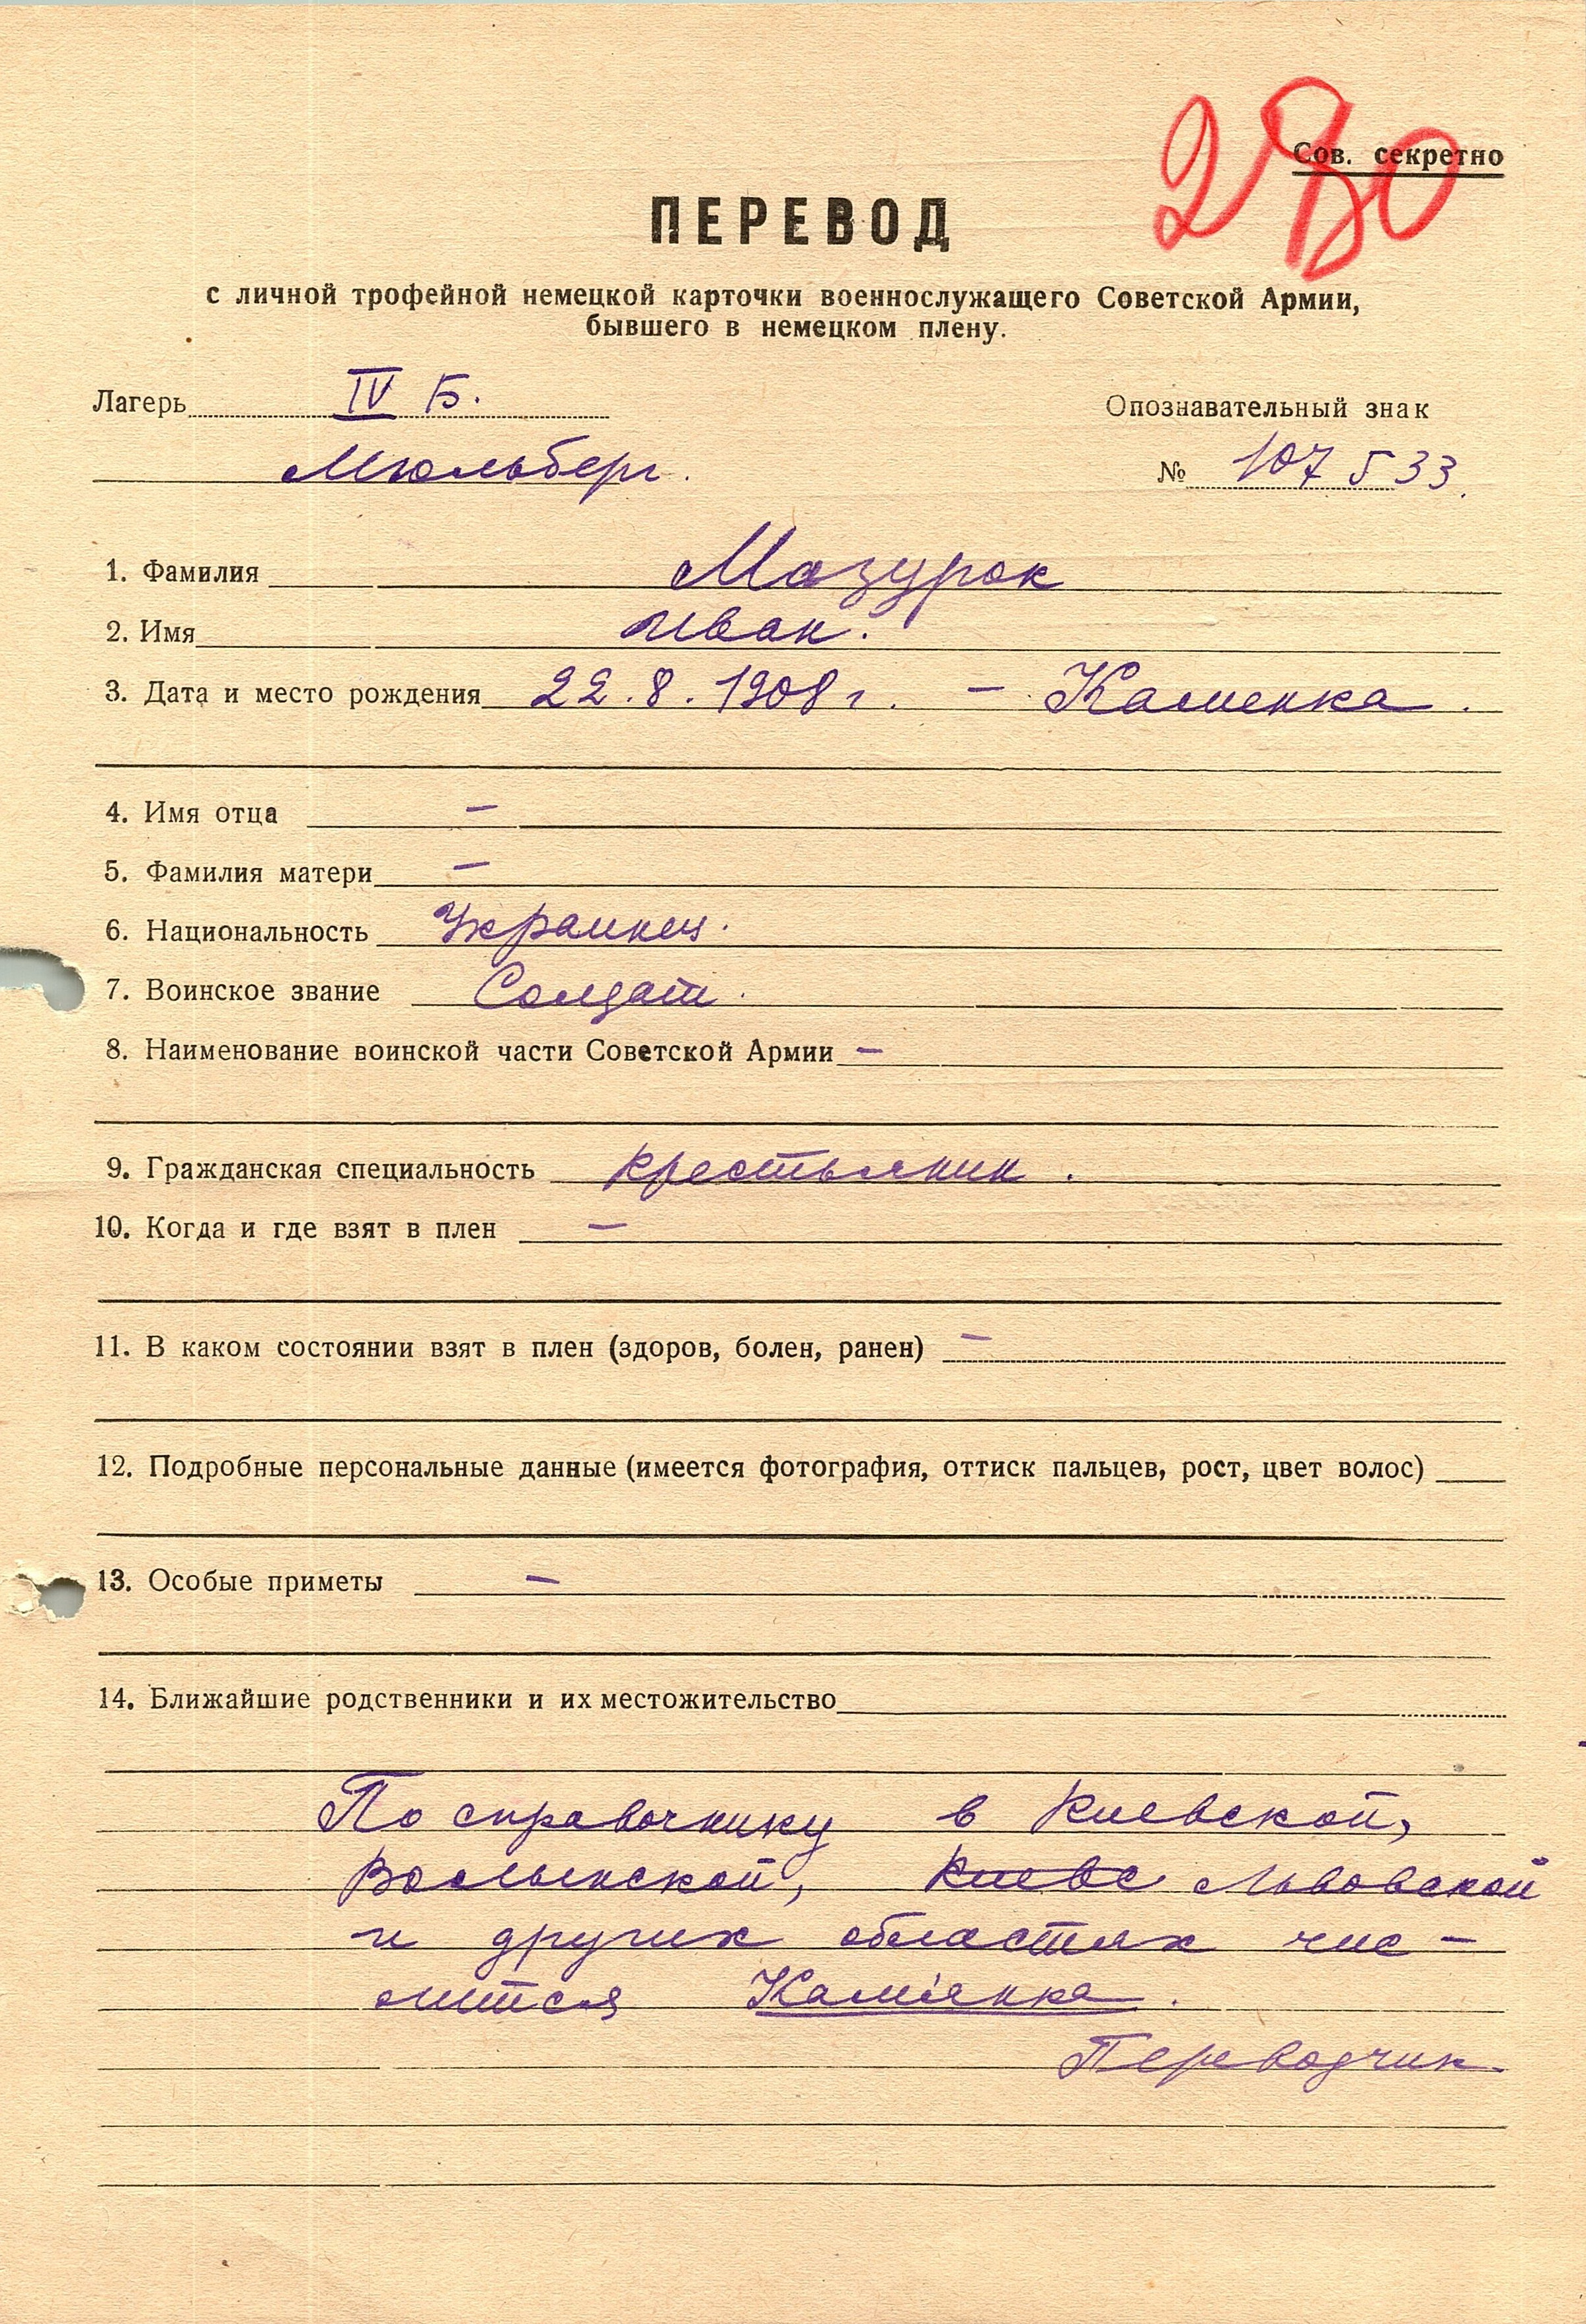 280
Сов. секретно
ПЕРЕВОД
с личной трофейной немецкой карточки военнослужащего Советской Армии,
бывшего в немецком плену.
Лагерь IV Б.
Опознавательный знак
Мюльберг.
№ 107533.
1. Фамилия Мазурок
2. Имя Иван.
3. Дата и место рождения 22.8.1908 г. – Каменка.
4. Имя отца –
5. Фамилия матери –
6. Национальность Украинец.
7. Воинское звание Солдат.
8. Наименование воинской части Советской Армии –
9. Гражданская специальность крестьянин.
10. Когда и где взят в плен –
11. В каком состоянии взят в плен (здоров, болен, ранен) –
12. Подробные персональные данные (имеется фотография, оттиск пальцев, рост, цвет волос)
13. Особые приметы –
14. Ближайшие родственники и их местожительство
По справочнику в Киевской,
Волынской, Киевс Львовской
и других областях чис-
лится Кам'янка.
Переводчик